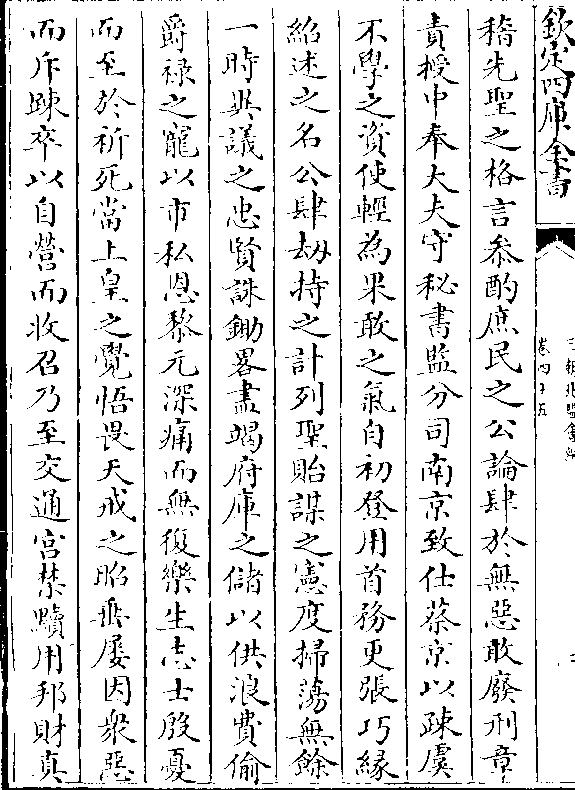 欽定四庫全書
三朝北盟會編
卷四十五
稽先聖之格言叅酌庶民之公論肆於無惡敢廢刑章
責授中奉大夫守秘書監分司南京致仕蔡京以疎虞
不學之資使輕為果敢之氣自初登用首務更張巧緣
紹述之名公肆刼持之計列聖貽謀之憲度掃蕩無餘
一時異議之忠賢誅鋤畧盡竭府庫之儲以供浪費偷
爵祿之寵以市私恩黎元深痛而無復樂生志士殷憂
而至於祈死當上皇之覺悟畏天戒之昭垂屢因衆惡
而斥踈卒以自營而收召乃至交通宫禁黷用邦財真